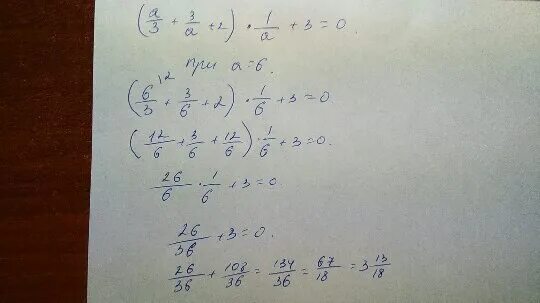 (a/3 + 3/a + 2) · 1/a + 3 = 0.
при a = 6.
(6/3 \2 + 3/6 + 2) · 1/6 + 3 = 0.
(12/6 + 3/6 + 12/6) · 1/6 + 3 = 0.
26/6 · 1/6 + 3 = 0.
26/36 + 3 = 0.
26/36 + 108/36 = 134/36 = 67/18 = 3 13/18